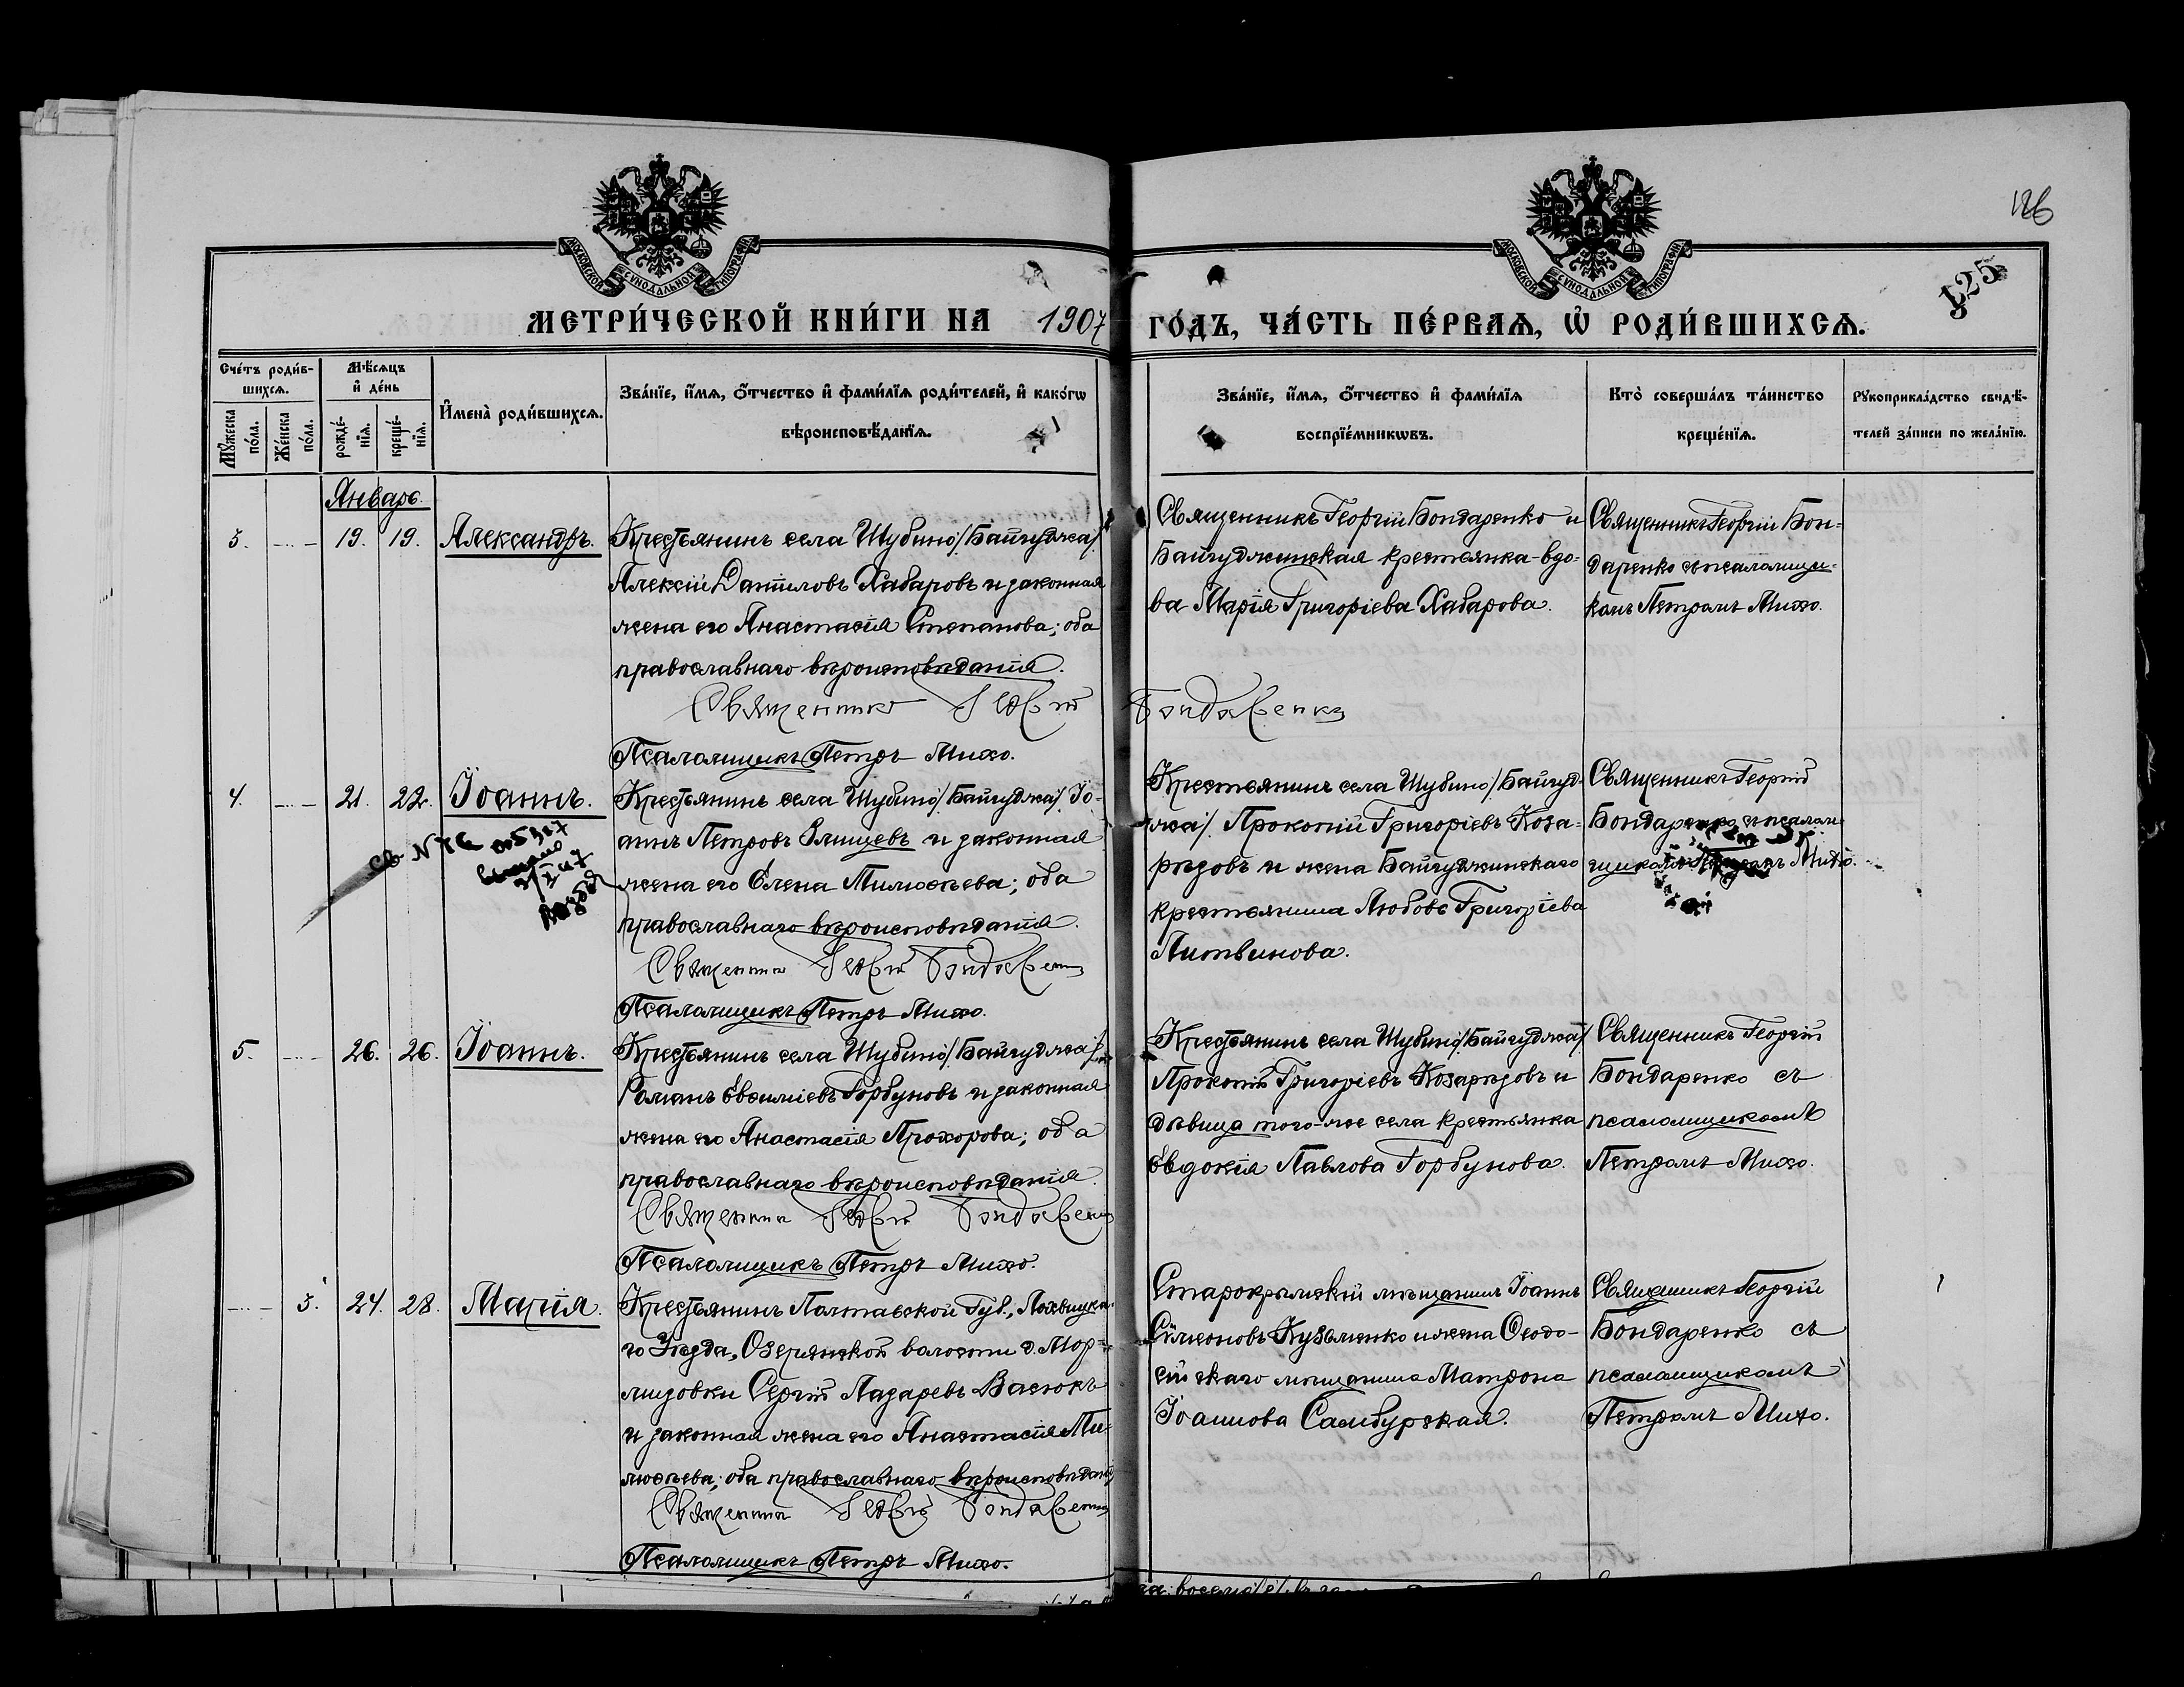 126
125
МОСКОВСКОЙ СѴНОДАЛЬНОЙ ТИПОГРАФІИ
МОСКОВСКОЙ СѴНОДАЛЬНОЙ ТИПОГРАФІИ
МЕТРИ́ЧЕСКОЙ КНИ́ГИ НА 1907 ГО́ДЪ, ЧА́СТЬ ПЕ́РВАѦ, Ѡ҆ РОДИ́ВШИХСѦ.
Сче́тъ роди́в-
шихсѧ.
Мꙋ́жеска по́ла.
Же́нска по́ла.
Мѣ́сѧцъ
и҆ де́нь
рожде́-
нїѧ.
креще́-
нїѧ.
И҆мена̀ роди́вшихсѧ.
Зва́нїе, и҆́мѧ, ѻ҆́тчество и҆ фами́лїѧ роди́телей, и҆ како́гѡ
вѣроисповѣ́данїѧ.
Зва́нїе, и҆́мѧ, ѻ҆́тчество и҆ фами́лїѧ
воспрїе́мникѡвъ.
Кто̀ соверша́лъ та́инство
креще́нїѧ.
Рꙋкоприкла́дство свидѣ́-
телей за́писи по жела́нїю.
Январь.
3. 19. 19. Александръ.
Крестьянинъ села Шубино /Байгуджа/
Алексій Даниловъ Хабаровъ и законная
жена его Анастасія Степанова; оба
православнаго вѣроисповѣданія.
Священникъ Георгій Бондаренко
Псаломщикъ Петръ Михо.
Священникъ Георгій Бондаренко и
Байгуджинская крестьянка-вдо-
ва Марія Григоріева Хабарова.
Священникъ Георгій Бон-
даренко съ псаломщи-
комъ Петромъ Михо.
4. 21. 22. Іоаннъ.
Крестьянинъ села Шубино /Байгуджа/ Іо-
аннъ Петровъ и законная
жена его Елена Тимоѳеева; оба
православнаго вѣроисповѣданія.
Священникъ Георгій Бондаренко
Псаломщикъ Петръ Михо.
Крестьянинъ села Шубино /Байгуд-
жа/ Прокопій Григоріевъ Коза-
рѣзовъ и жена Байгуджинскаго
крестьянина Любовь Григоріева
Литвинова.
Священникъ Георгій
Бондаренко съ псалом-
щикомъ Петромъ Михо.
5. 26. 26. Іоаннъ.
Крестьянинъ села Шубино /Байгуджа/
Романъ Евѳиміевъ Горбуновъ и законная
жена его Анастасія Прохорова; оба
православнаго вѣроисповѣданія.
Священникъ Георгій Бондаренко
Псаломщикъ Петръ Михо.
Крестьянинъ села Шубино /Байгуджа/
Прокопій Григоріевъ Козарѣзовъ и
дѣвица того-же села крестьянка
Евдокія Павлова Горбунова.
Священникъ Георгій
Бондаренко съ
псаломщикомъ
Петромъ Михо.
3. 24. 28. Марія.
Крестьянинъ Полтавской Губ., Лохвицка-
го Уѣзда, Озерянской волости д.
Сергій Лазаревъ Васюкъ
и законная жена его Анастасія Ти-
моѳеева; оба православнаго вѣроисповѣданія
Священникъ Георгій Бондаренко
Псаломщикъ Петръ Михо.
Старокрымскій мѣщанинъ Іоаннъ
Симеоновъ Кузьменко и жена Ѳеодо-
сійскаго мѣщанина Матрона
Іоаннова Самбурская.
Священникъ Георгій
Бондаренко съ
псаломщикомъ
Петромъ Михо.